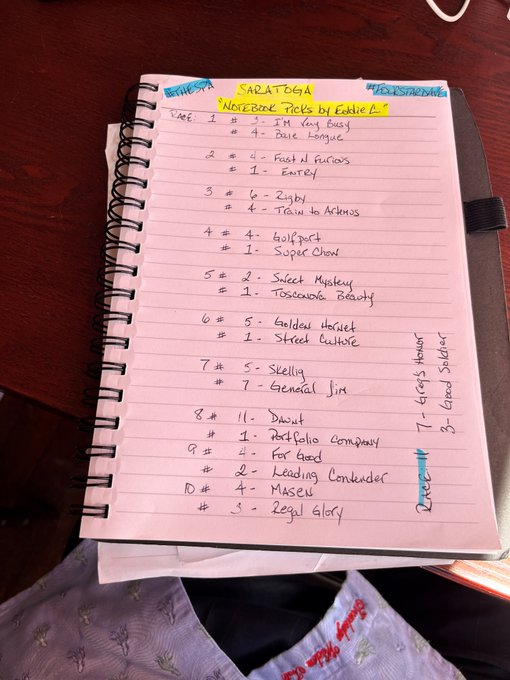 #THESPA SARATOGA #FOURSTARDAVE
"NOTEBOOK Picks by Eddie C."
RACE: 1 # 3- I'm Very Busy
# 4- Baie Longue
2 # 4- Fast N Furious
# 1- ENTRY
3 # 6- Rigby
# 4- Train to Artemus
4 # 4- Gulfport
# 1- Super Chow
5 # 2- Sweet Mystery
# 1- Tosconova Beauty
6 # 5- Golden Hornet
# 1- Street Culture
7 # 5- Skellig
# 7- General Jim
8 # 11- DAUNT
# 1- Portfolio Company
9 # 4- For Good
# 2- Leading Contender
10 # 4- MASEN
# 3- Regal Glory
RACE 11 7- Greg's HONOR
3- Good Soldier